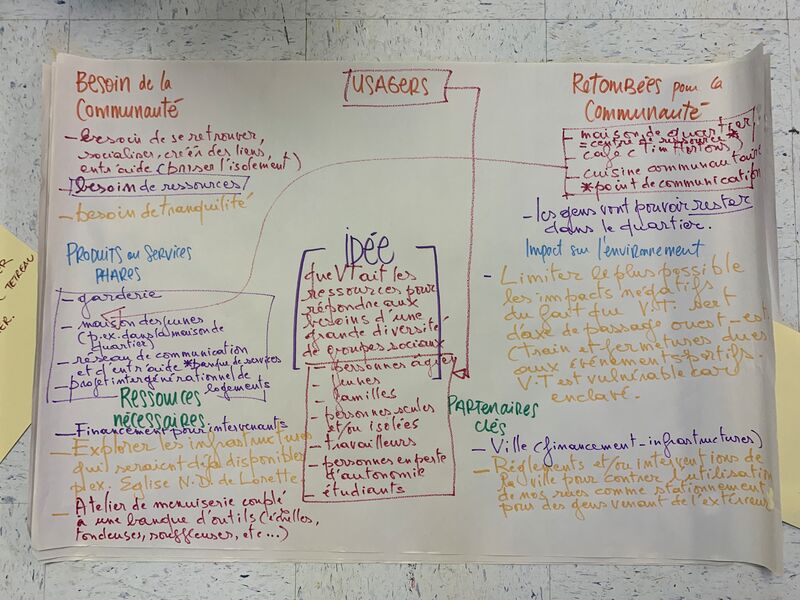 BESOIN de la
COMMUNAUTÉ
- besoin de se retrouver,
socialiser, créer des liens,
entraide (briser l'isolement)
besoin de ressources
- besoin de tranquilité
PRODUITS ou SERVICES
PHARES
- garderie
- maison des jeunes
(p.ex. dans la maison de
quartier)
- réseau de communication
et d'entraide *banque de services
- projet intergénérationnel de
logements
RESSOURCES
nécessaires
- Financement pour intervenants
- Explorer les infrastructures
qui seraient déjà disponibles
p.ex. Eglise N.D. de Lorette
- Atelier de menuiserie couplé
à une banque d'outils (échelles,
tondeuses, souffleuses, etc...)
USAGERS
IDÉE
que VT ait les
ressources pour
répondre aux
besoins d'une
grande diversité
de groupes sociaux
- personnes âgées
- jeunes
- familles
- personnes seules
et/ou isolées
- travailleurs
- personnes en perte
d'autonomie
- étudiants
Retombées pour la
Communauté
- maison de quartier
= centre de ressource *
- café (Tim Hortons)
- cuisine communautaire
*point de communication
- les gens vont pouvoir rester
dans le quartier.
Impact sur l'environnement
- Limiter le plus possible
les impacts négatifs
du fait que V.T. sert
d'axe de passage ouest-est
(train et fermetures dues
aux événements sportifs.
V.T est vulnérable car
enclavé.
PARTENAIRES
CLÉS
- Ville (financement-infrastructures)
- Règlements et/ou interventions de
la ville pour contrer l'utilisation
de nos rues comme stationnement
pour des gens venant de l'extérieur
TETREAU